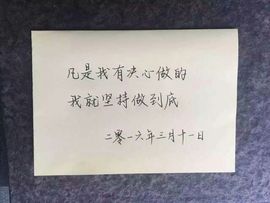 凡是我有决心做的
我就坚持做到底
二零一六年三月十一日